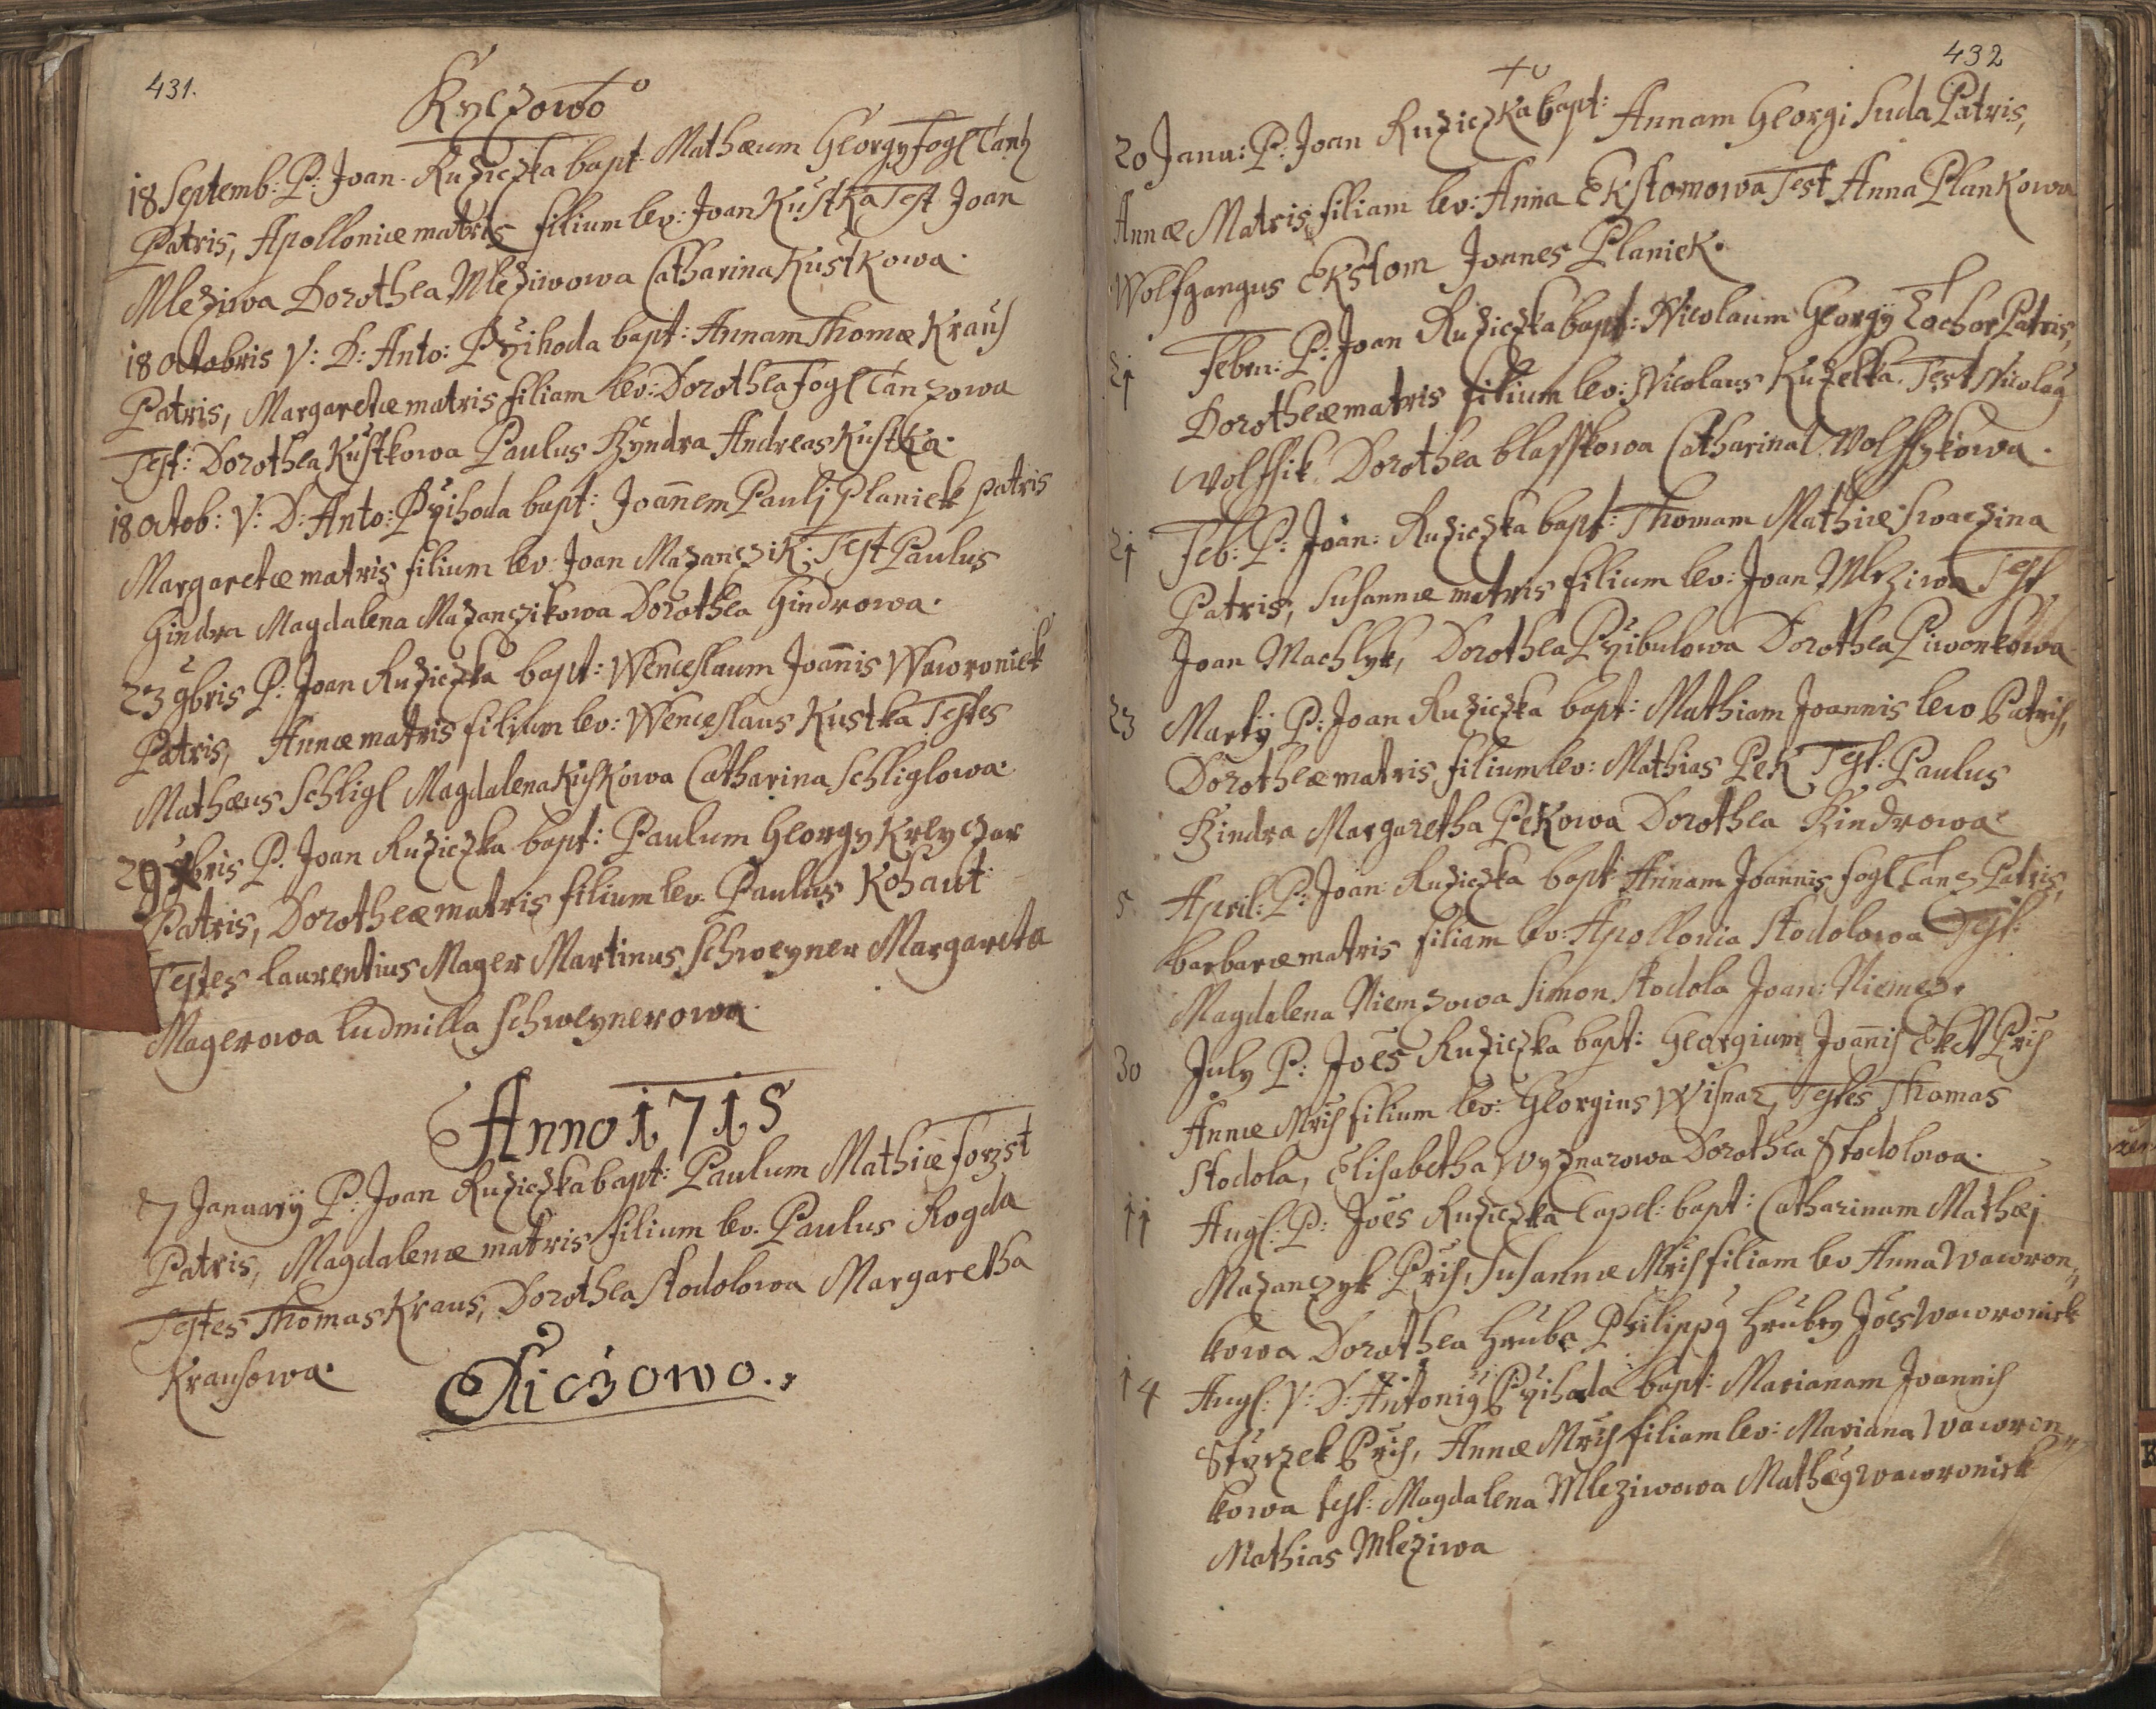 431.
Kyczowo
18 Septemb: P: Joan. Ruziczka bapt. Mathæum Georgy Fogltantz
Patris, Apolloniæ matris filium lev: Joan Kustka Test Joan
Mleziwa Dorothea Mleziwowa Catharina Kustkowa.
18 Octobris V: D: Anto: Przihoda bapt: Annam Thomæ Kraus
Patris, Margaretæ matris filiam lev: Dorothea Fogltanzowa
Test: Dorothea Kustkowa Paulus Gyndra Andreas Kustka.
18 Octob: V: D: Anto: Przihoda bapt: Joannem Paulj Planiek patris
Margaretæ matris filium lev: Joan Mazanczik: Test Paulus
Gindra Magdalena Mazanczikowa Dorothea Gindrowa.
23 9bris P: Joan Ruziczka bapt: Wenceslaum Joannis Waworoniek
Patris, Annæ matris filium lev: Wenceslaus Kustka Testes
Mathæus Schligl Magdalena Kuskowa Catharina Schliglowa.
29 bris P. Joan Ruziczka bapt: Paulum Georgy Kreyczar
Patris, Dorotheæ matris filium lev. Paulus Kohaut:
Testes Laurentius Mager Martinus Schweyner Margareta
Magerowa Ludmilla Schweynerowa.
Anno 1715
7 January P: Joan Ruziczka bapt: Paulum Mathiæ Forzst
Patris, Magdalenæ matris filium lev. Paulus Rogda
Testes Thomas Kraus, Dorothea Stodolowa Margaretha
Krausowa.
Kiczowo.
432
20 Janu: P: Joan Ruziczka bapt: Annam Georgi Suda Patris,
Annæ Matris filiam lev: Anna Ekstomowa Test Anna Plankowa
Wolfgangus Ekstom Joannes Planiek.
21 Febru: P: Joan Ruziczka bapt: Nicolaum Georgÿ Tochor Patris,
Dorotheæ matris filium lev: Nicolaus Kuzelka. Test Nicolaus
Wolffik Dorothea blasskowa Catharina Wolffykowa.
21 Feb: P: Joan: Ruziczka bapt: Thomam Mathiæ Swaczina
Patris, Susannæ matris filium lev: Joan Mleziwa Test
Joan Machlyk, Dorothea Przibulowa Dorothea Piwonkowa.
23 Martÿ P: Joan Ruziczka bapt: Mathiam Joannis Lew Patris,
Dorotheæ matris filium lev: Mathias Pek Test: Paulus
Gindra Margaretha Pekowa Dorothea Gindrowa
5 April: P: Joan: Ruziczka bapt: Annam Joannis Fogltanz Patris,
barbaræ matris filiam lev: Apollonia Stodolowa Test:
Magdalena Niemzowa Simon Stodola Joan: Niemez.
30 July P: Joes Ruziczka bapt: Georgium Joannis Eket Pris
Annæ Mris filium lev: Georgius Wisnar, Testes Thomas
Stodola, Elisabetha Wyznarowa Dorothea Stodolowa.
11 Augs: P: Joes Ruziczka Capel: bapt: Catharinam Mathæj
Mazanczyk Pris, Susannæ Mris filiam lev Anna Waworon„
kowa Dorothea Hruba Philippus Hruby Joes Waworoniek
14 Augs: V: D: Antonius Przihoda bapt: Marianam Joannis
Styrzek Pris, Annæ Mris filiam lev: Mariana Waworon„
kowa test: Magdalena Mleziwowa Mathæus Waworoniek
Mathias Mleziwa